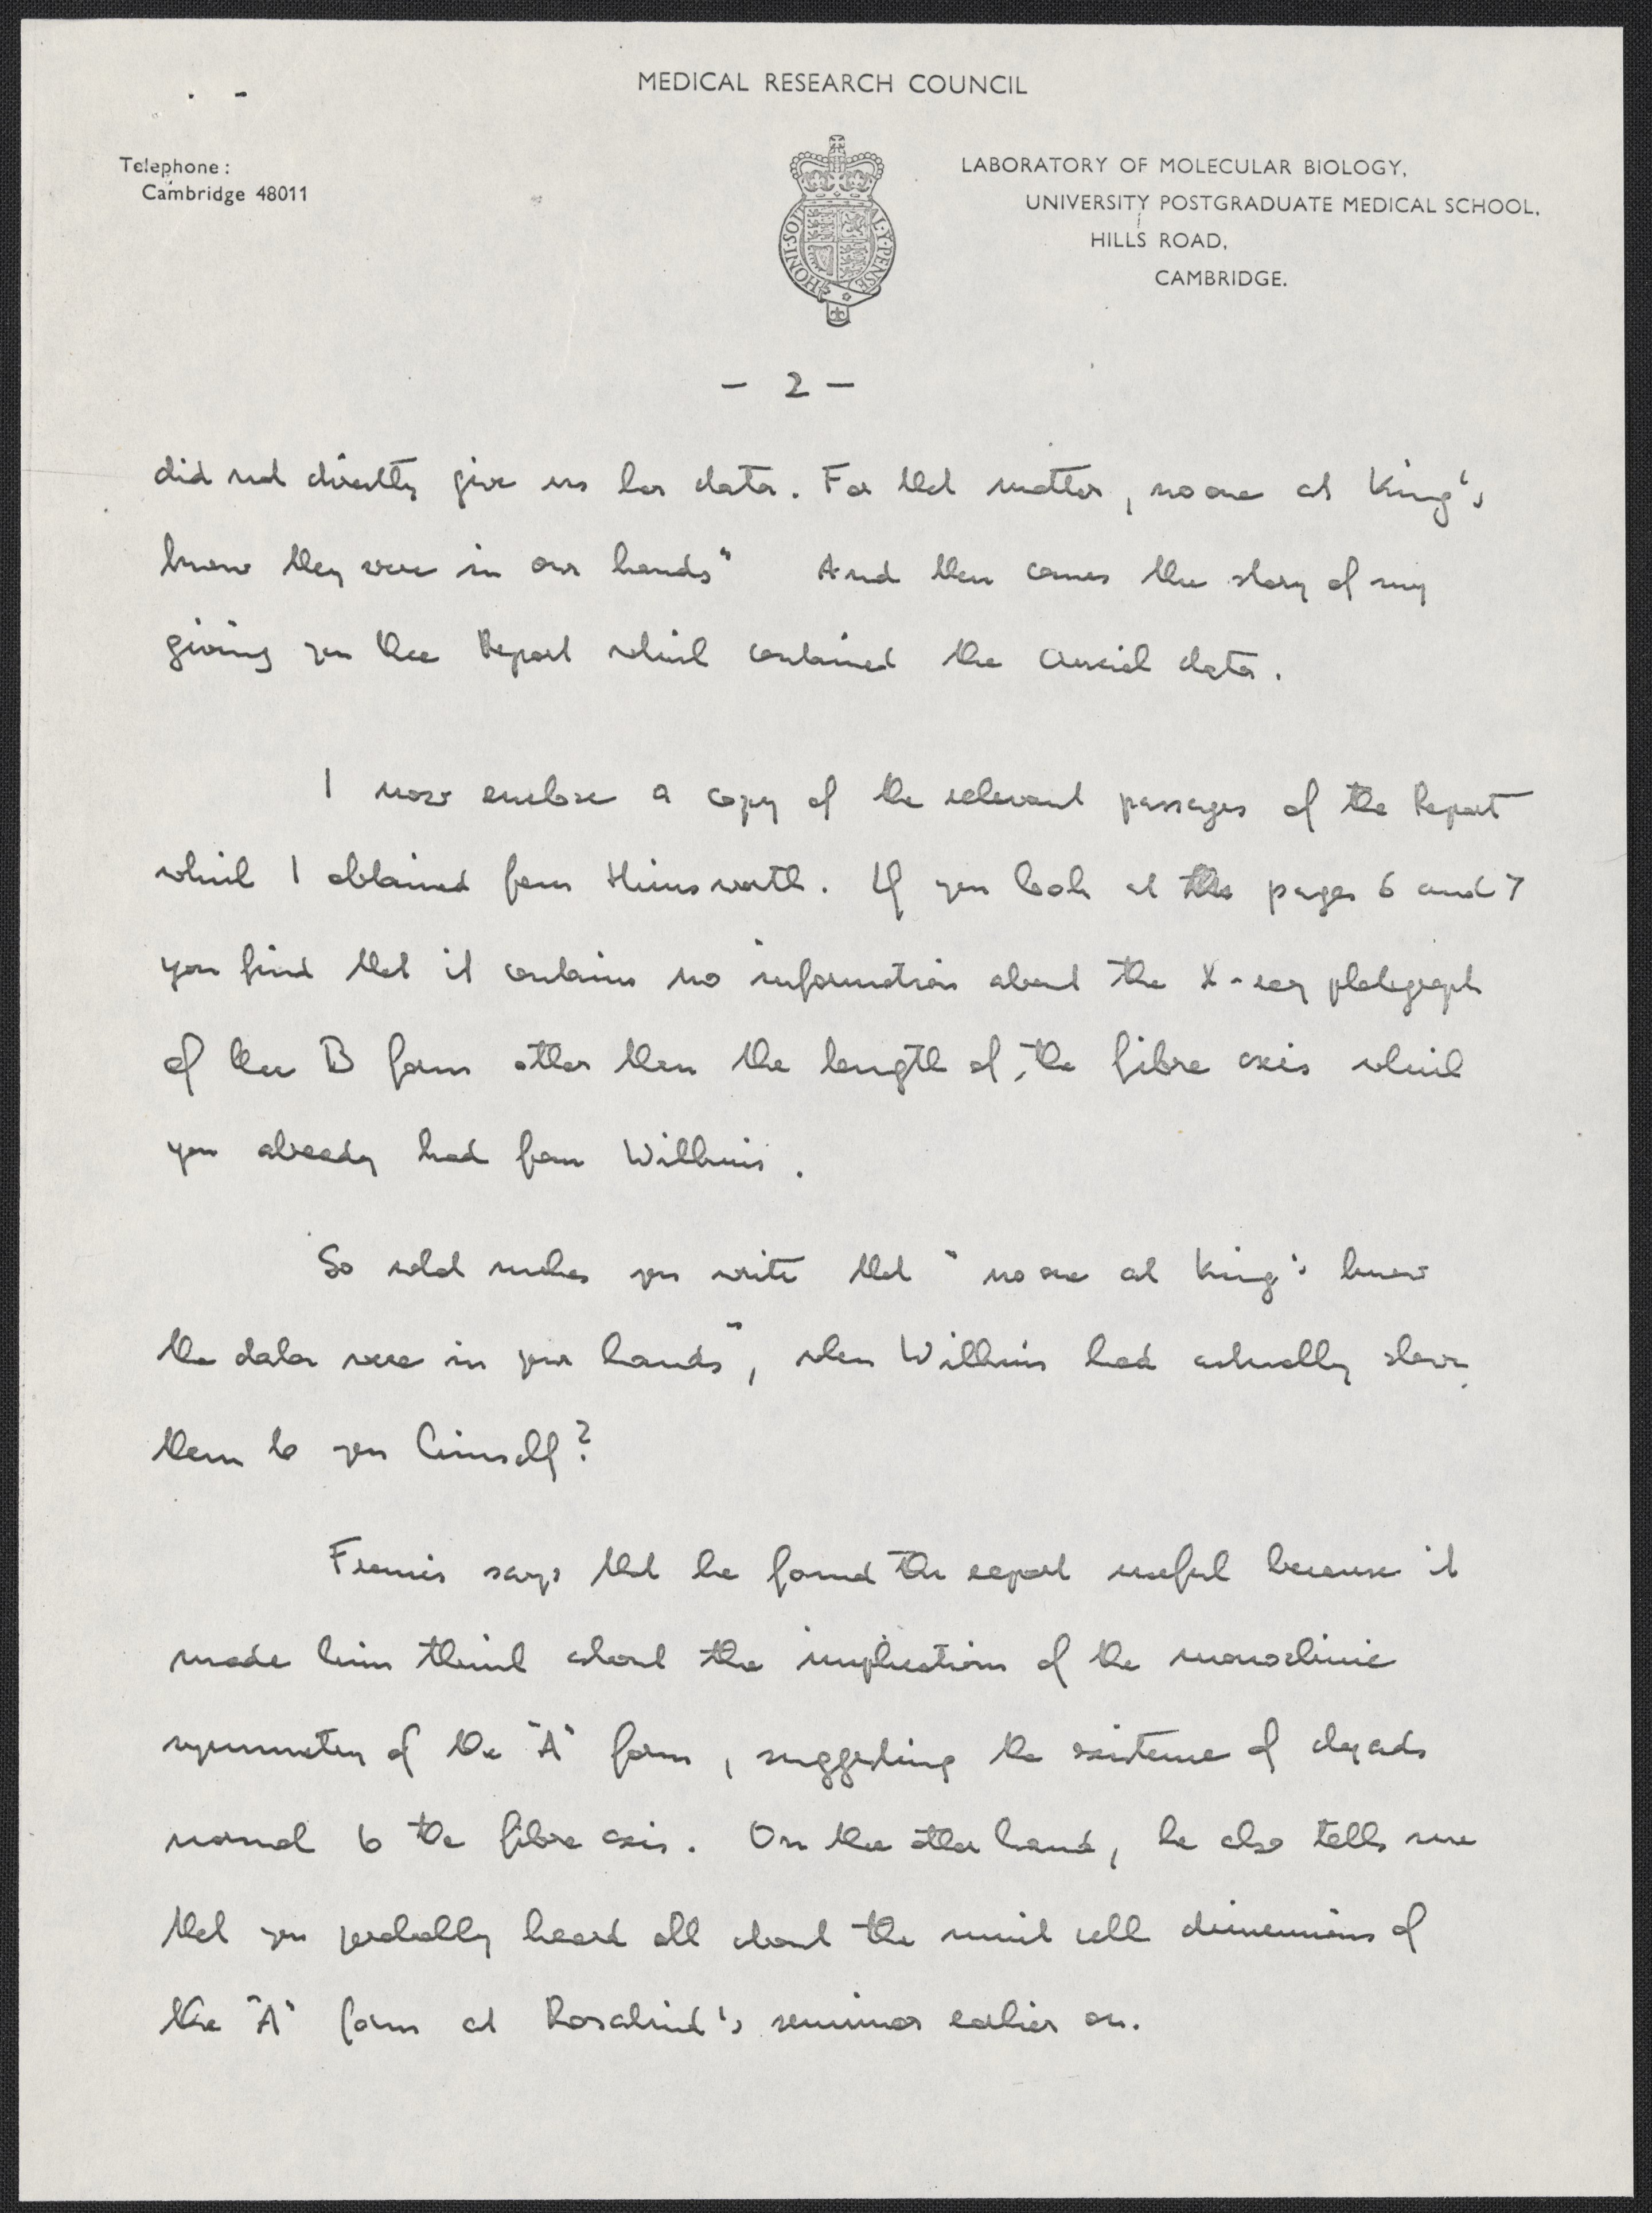 MEDICAL RESEARCH COUNCIL
Telephone:
Cambridge 48011
HONI·SOIT AL·Y·PENSE
LABORATORY OF MOLECULAR BIOLOGY,
UNIVERSITY POSTGRADUATE MEDICAL SCHOOL,
HILLS ROAD,
CAMBRIDGE.
— 2 —
did not directly give us her data. For that matter, no one at King's
knew they were in our hands" And then comes the story of my
giving you the Report which contained the crucial data.
I now enclose a copy of the relevant passages of the Report
which I obtained from Himsworth. If you look at the pages 6 and 7
you find that it contains no information about the X-ray photograph
of the B form other than the length of the fibre axis which
you already had from Wilkins.
So what makes you write that "no one at King's knew
the data were in your hands", when Wilkins had actually shown
them to you himself?
Francis says that he found the report useful because it
made him think about the implications of the monoclinic
symmetry of the "A" form, suggesting the existence of dyads
normal to the fibre axis. On the other hand, he also tells me
that you probably heard all about the unit cell dimensions of
the "A" form at Rosalind's seminar earlier on.